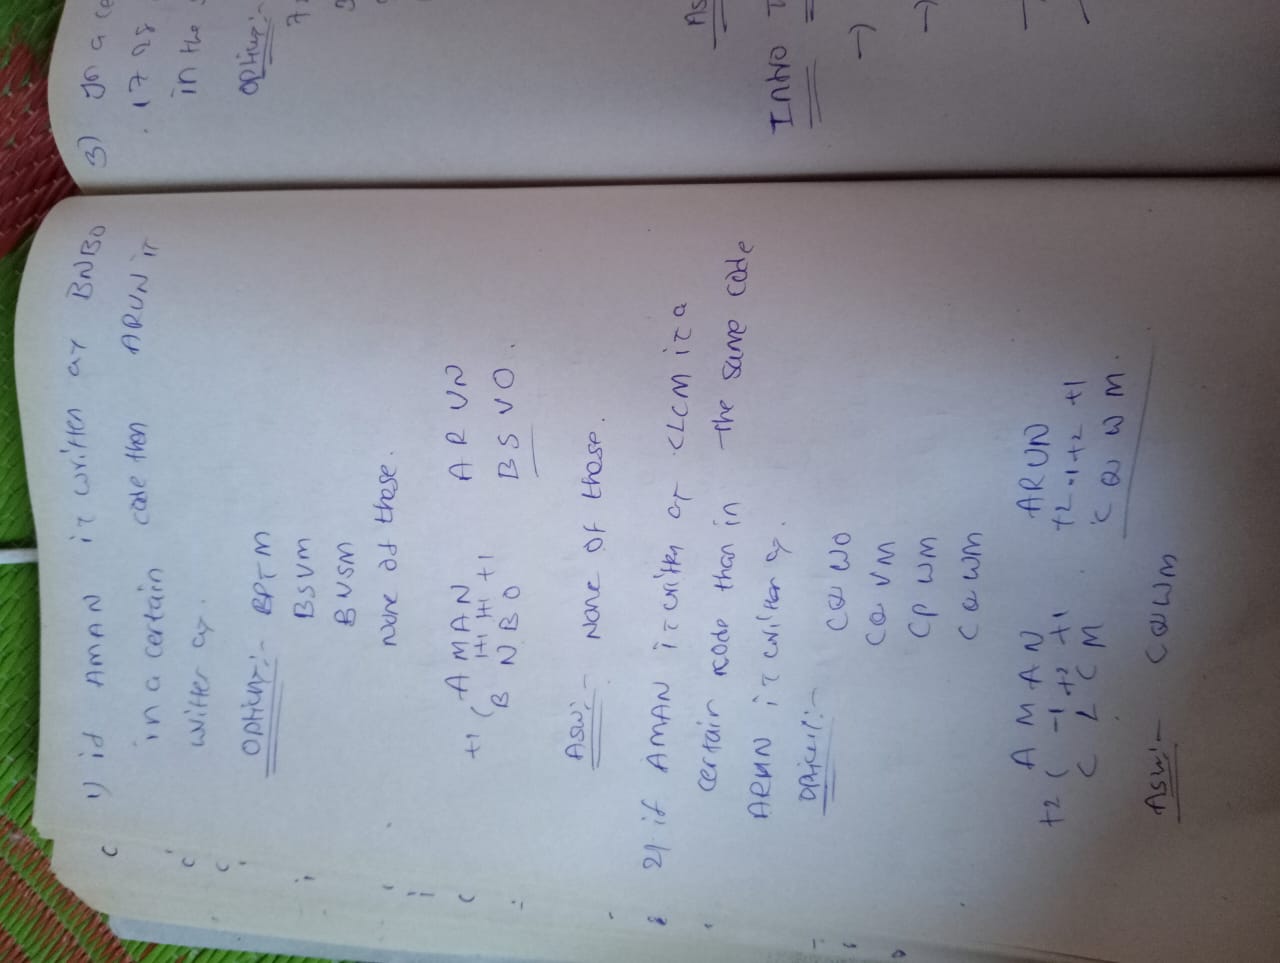 1) if AMAN is written as BNBO
in a certain code then ARUN is
written as.
Options:- BPTM
BSVM
BUSM
None of these.
AMAN ARUN
+1 ( +1 +1 +1
BNBO BSVO.
Asw:- None of these.
2) if AMAN is written as CLCM is a
certain code than in the same code
ARUN is written as.
CQWO
CQVM
CPWM
CQWM
AMAN ARUN
+2 ( -1 +2 +1 +2 -1 +2 +1
CLCM CQWM.
Asw:- CQWM
3) In a ce
in the
Options:-
As
Intro